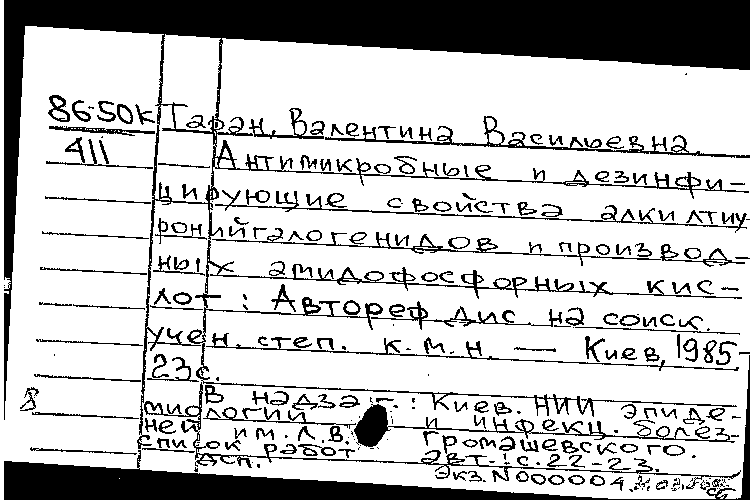 86-50к Таран, Валентина Васильевна.
411 Антимикробные и дезинфи-
цирующие свойства алкилтиу
ронийгалогенидов и производ-
ных амидофосфорных кис-
лот : Автореф дис. на соиск.
учен. степ. к.м.н. — Киев, 1985.
23с.
В надзаг.: Киев. НИИ эпиде-
8 миологии и инфекц. болез-
ней им. Л.В. Громашевского.
список работ авт.: с.22-23.
дсп.
Экз. N000004